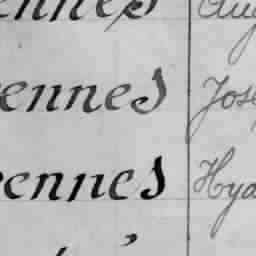 ennes Aug
ennes Jose
ennes Hya